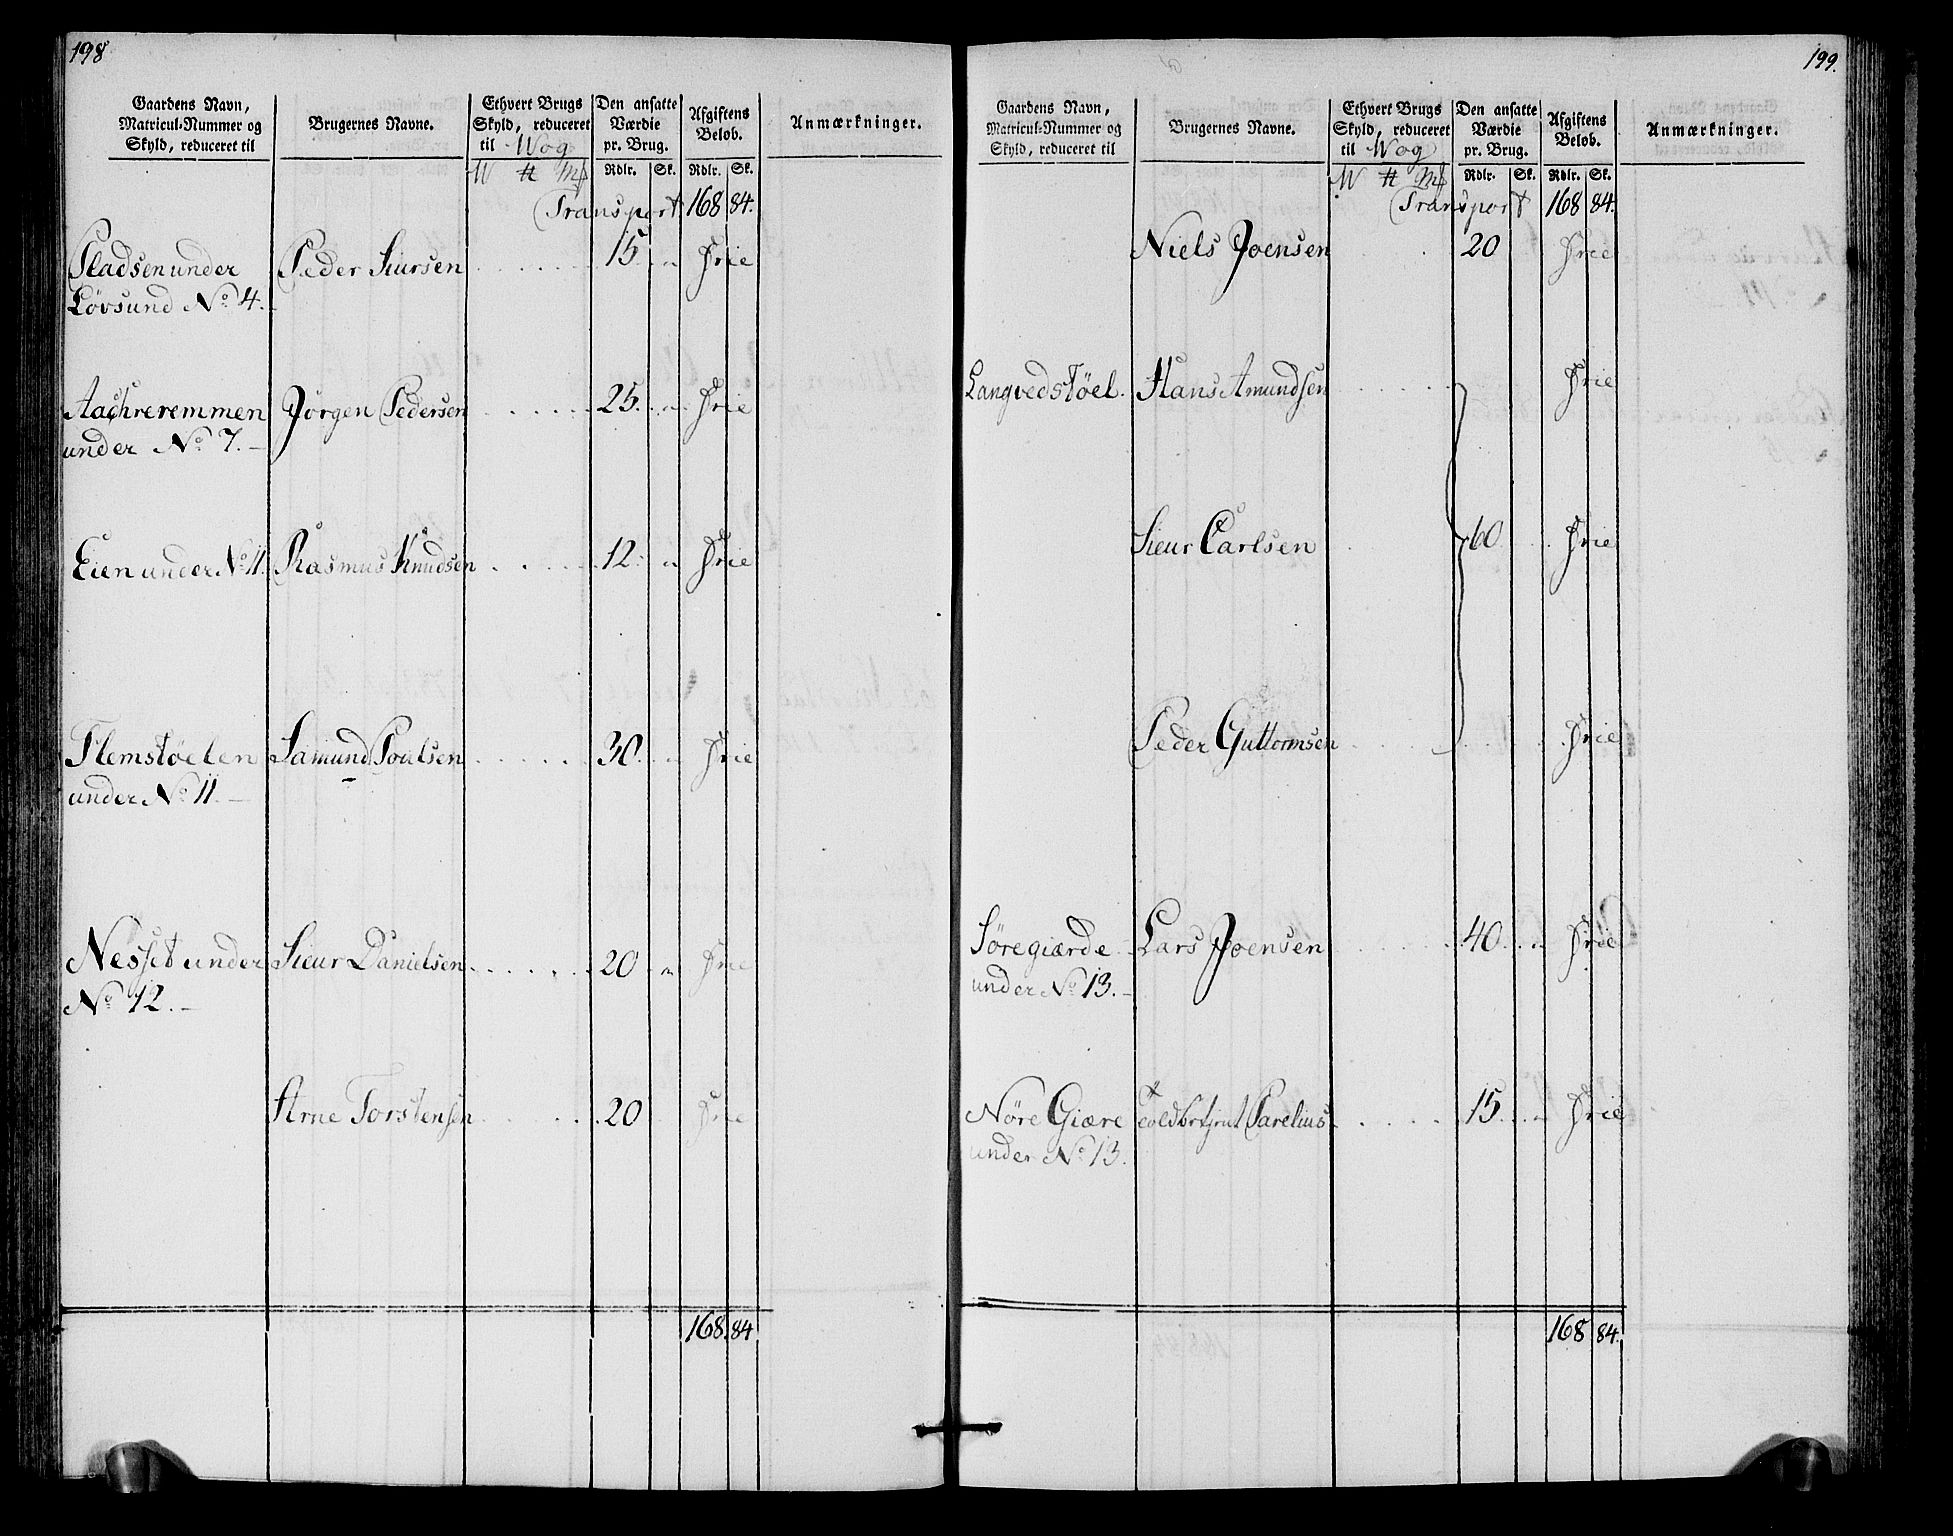 198
Gaardens Navn, Matricul-Nummer og Skyld, reduceret til
Brugernes Navne.
Ethvert Brugs Skyld, reduceret til Wog
Den ansatte Værdie pr. Brug.
Afgiftens Beløb.
Anmærkninger.
Rdlr. Sk. Rdlr. Sk.
Transport 168 84.
Pladsen under Peder Siursen 15 " Frie
Løvsund No 4.
Aachreremmen Jørgen Pedersen 25. " Frie
under No 7.
Eien under No 11. Rasmus Knudsen 12. " Frie
Flemstøelen Samund Poulsen 30. " Frie
under No 11.
Nesset under Sieur Danielsen 20 " Frie
No 12.
Arne Torstensen 20 Frie
168. 84
199.
Gaardens Navn, Matricul-Nummer og Skyld, reduceret til
Brugernes Navne.
Ethvert Brugs Skyld, reduceret til Wog
Den ansatte Værdie pr. Brug.
Afgiftens Beløb.
Anmærkninger.
Rdlr. Sk. Rdlr. Sk.
Transport 168 84.
Niels Joensen 20 Frie
Langvedstøel. Hans Amundsen Frie
Sieur Carlsen 60 Frie
Peder Guttormsen Frie
Søregiærde Lars Joensen 40. " Frie
under No 13.
Nøre Giære Parelius 15. " Frie
under No 13.
168 84.